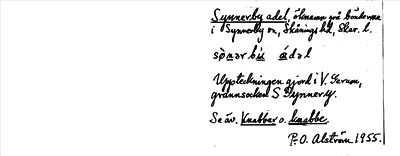 Synnerby adel, öknamn på bönderna
i Synnerby sn, Skånings hd, Skar. l.
sònər bù ádəl
Uppteckningen gjord i V. Gerum,
grannsocken S Synnerby.
Se äv. Knabbar o. knabbe.
P.O. Alström 1955.